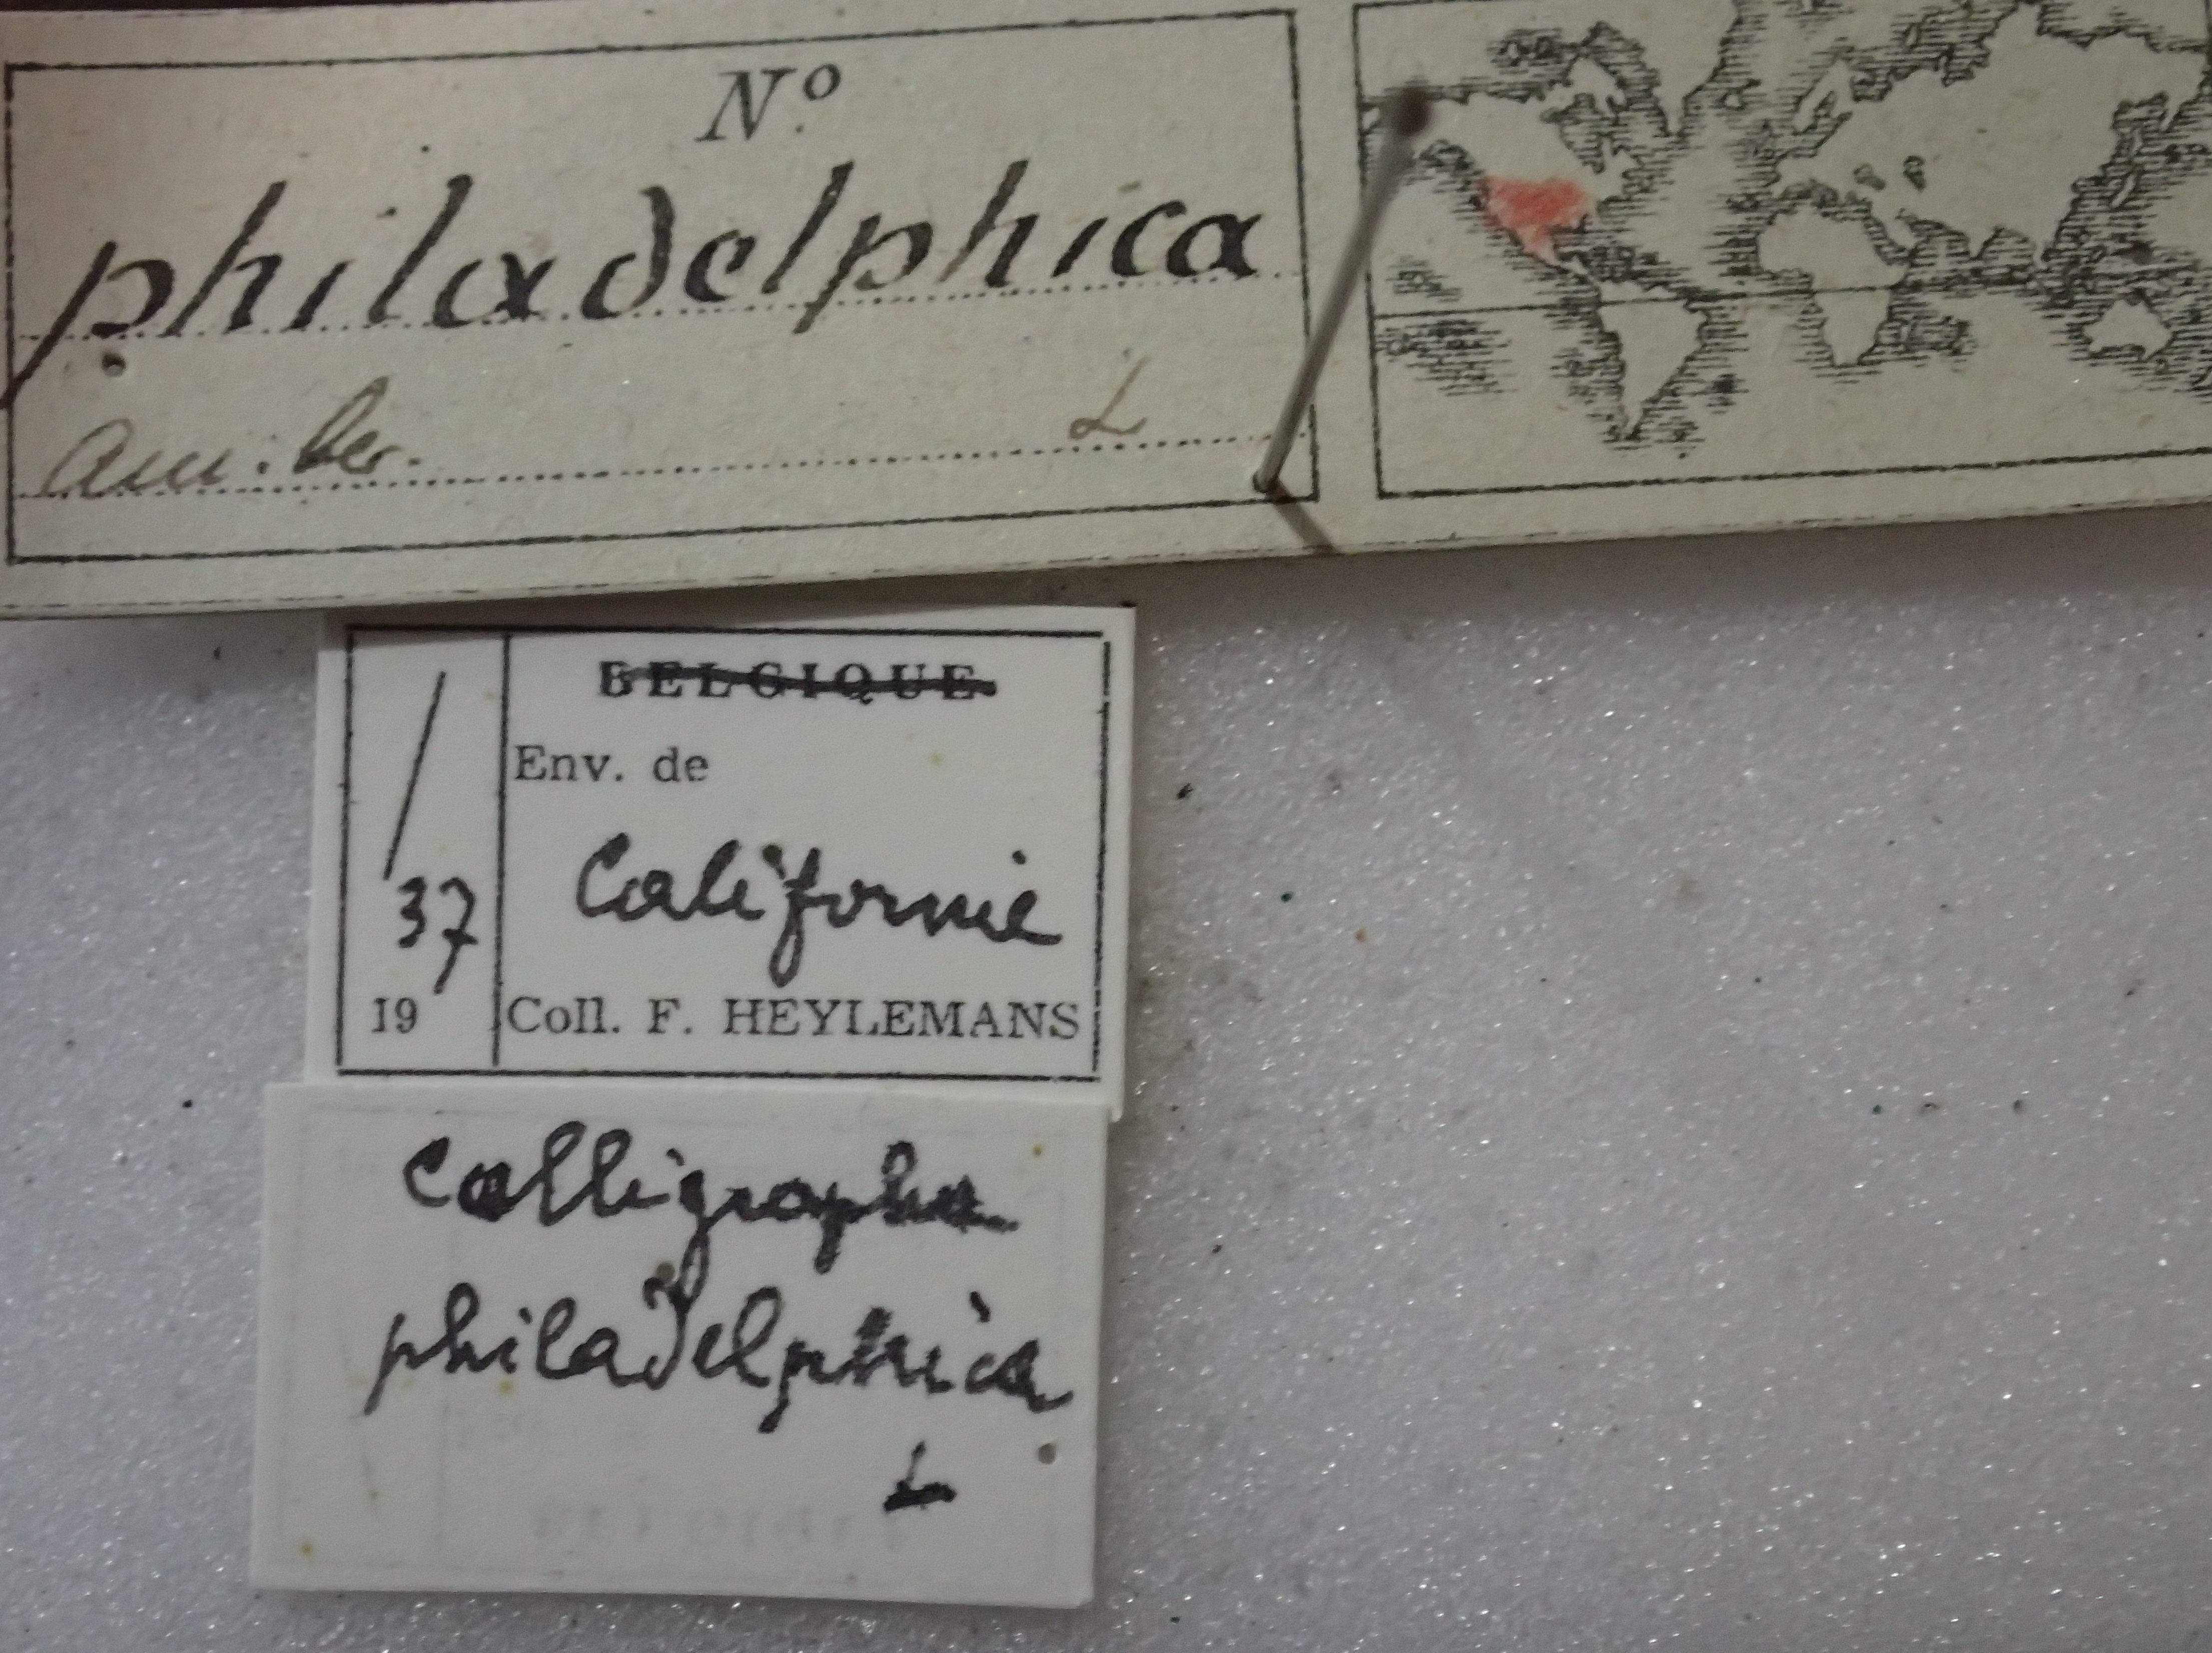 Nº
philadelphica
Am. bor. L
BELGIQUE.
Env. de
Californie
/
37
19
Coll. F. HEYLEMANS
Calligrapha
philadelphica
L